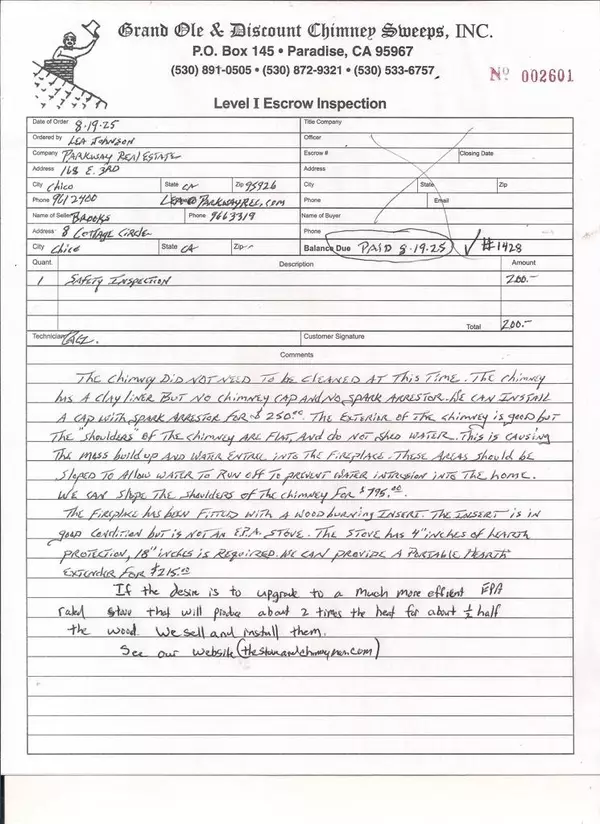 Grand Ole & Discount Chimney Sweeps, INC.
P.O. Box 145 • Paradise, CA 95967
(530) 891-0505 • (530) 872-9321 • (530) 533-6757
Nº 002601
Level I Escrow Inspection
Date of Order 8-19-25 Title Company
Ordered by LEA JOHNSON Officer
Company PARKWAY REAL ESTATE Escrow # Closing Date
Address 168 E. 3RD Address
City Chico State CA Zip 95926 City State Zip
Phone 9612400 LEA@PARKWAYREC.COM Phone Email
Name of Seller BROOKS Phone 9663319 Name of Buyer
Address 8 COTTAGE CIRCLE Phone
City Chico State CA Zip Balance Due PAID 8-19-25 #1428
Quant. Description Amount
1 SAFETY INSPECTION 200.-
Total 200.-
Technician Customer Signature
Comments
The chimney DID NOT NEED TO be CLEANED AT This TIME. The chimney
hAS A clay liner BUT NO chimney CAP AND NO SPARK ARRESTOR. WE CAN INSTALL
A CAP WITH SPARK ARRESTOR FOR $250.00. The EXTERIOR OF The chimney is good but
The "shoulders" OF The chimney ARE FLAT, AND do NOT shed WATER. This is CAUSING
The MOSS build up AND WATER ENTRY INTO The FIREPLACE. These AREAS Should be
Sloped To Allow WATER To RUN off To PREVENT WATER INTRUSION INTO The home.
WE CAN Slope The Shoulders OF The chimney FOR $795.00.
The FIREPLACE hAS been FITTED WITH A WOODburning INSERT. The INSERT is in
good CONDITION but is NOT AN E.P.A. STOVE. The STOVE hAS 4" inches of hEARTh
PROTECTION, 18" inches is REQUIRED. WE CAN PROVIDE A PORTABLE HEARTh
EXTENDER FOR $215.00
If the desire is to upgrade to a much more efficent EPA
rated stove that will produce about 2 times the heat for about ½ half
the wood. We sell and install them.
See our website (thestoveandchimneyman.com)